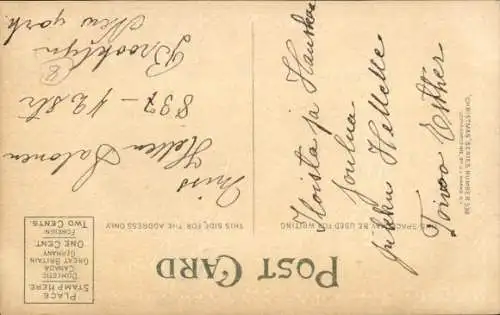 POST CARD
PLACE
STAMP HERE.
DOMESTIC
CANADA
GREAT BRITAIN
GERMANY
ONE CENT.
FOREIGN
TWO CENTS.
THIS SPACE MAY BE USED FOR WRITING
THIS SIDE FOR THE ADDRESS ONLY
"CHRISTMAS" SERIES NUMBER 538
Iloista ja Hauskaa
Joulua
Hellelle
Toivoo Esther
Miss
Hellen Salonen
837 – 42 str
Brooklyn
New york.
8